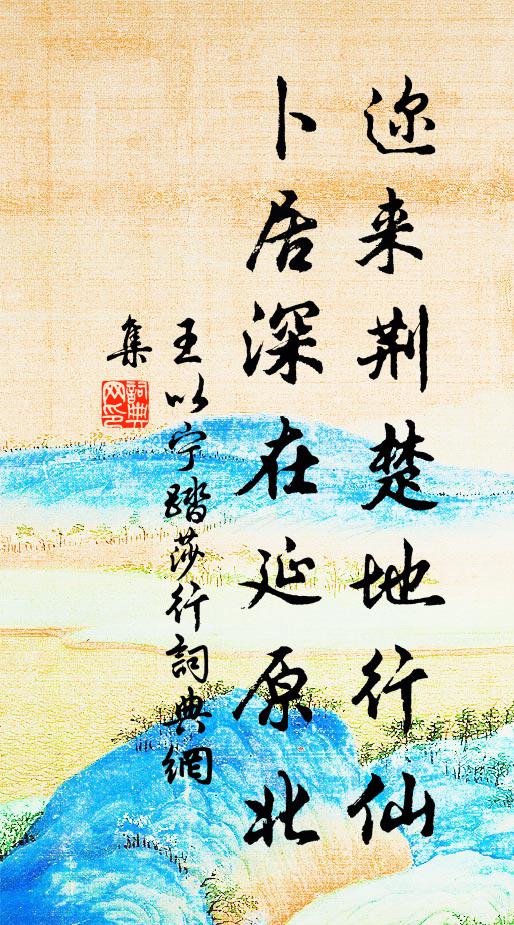 迩来荆楚地行仙
卜居深在延原北
王以宁踏莎行詞典網
集
詞典网印